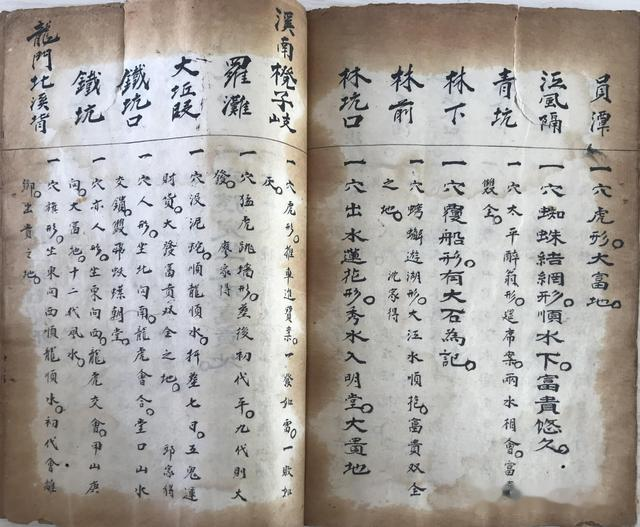 員潭 一穴虎形大富地
江風隔 一穴蜘蛛結網形順水下富貴悠久
青坑 一穴太平醉翁形遅席案兩水相會富貴
雙全
林下 一穴覆船形有大石為記
林前 一穴螃蠏遊湖形大江水順抱富貴双全
之地 沈家得
林坑口 一穴出水蓮花形秀水入明堂大畐地
溪南欖子岐 一穴虎形推車進寶案一發如雷一敗如
灰
羅灘 一穴猛虎跳墻形葬後初代平九代則大
發 廖家得
大坵段 一穴没泥蛇順龍順水扦葬七日五鬼運
財貨大發富貴双全之地 邱家得
鐵坑口 一穴人形坐北向南龍虎會合堂口山水
交鎖雙
朝堂
鐵坑 一穴亦人形坐東向西龍虎交會甲山庚
向大畐地十二代風水
龍門北溪背 一穴
形坐東向西順龍順水初代會離
鄉出貴之地